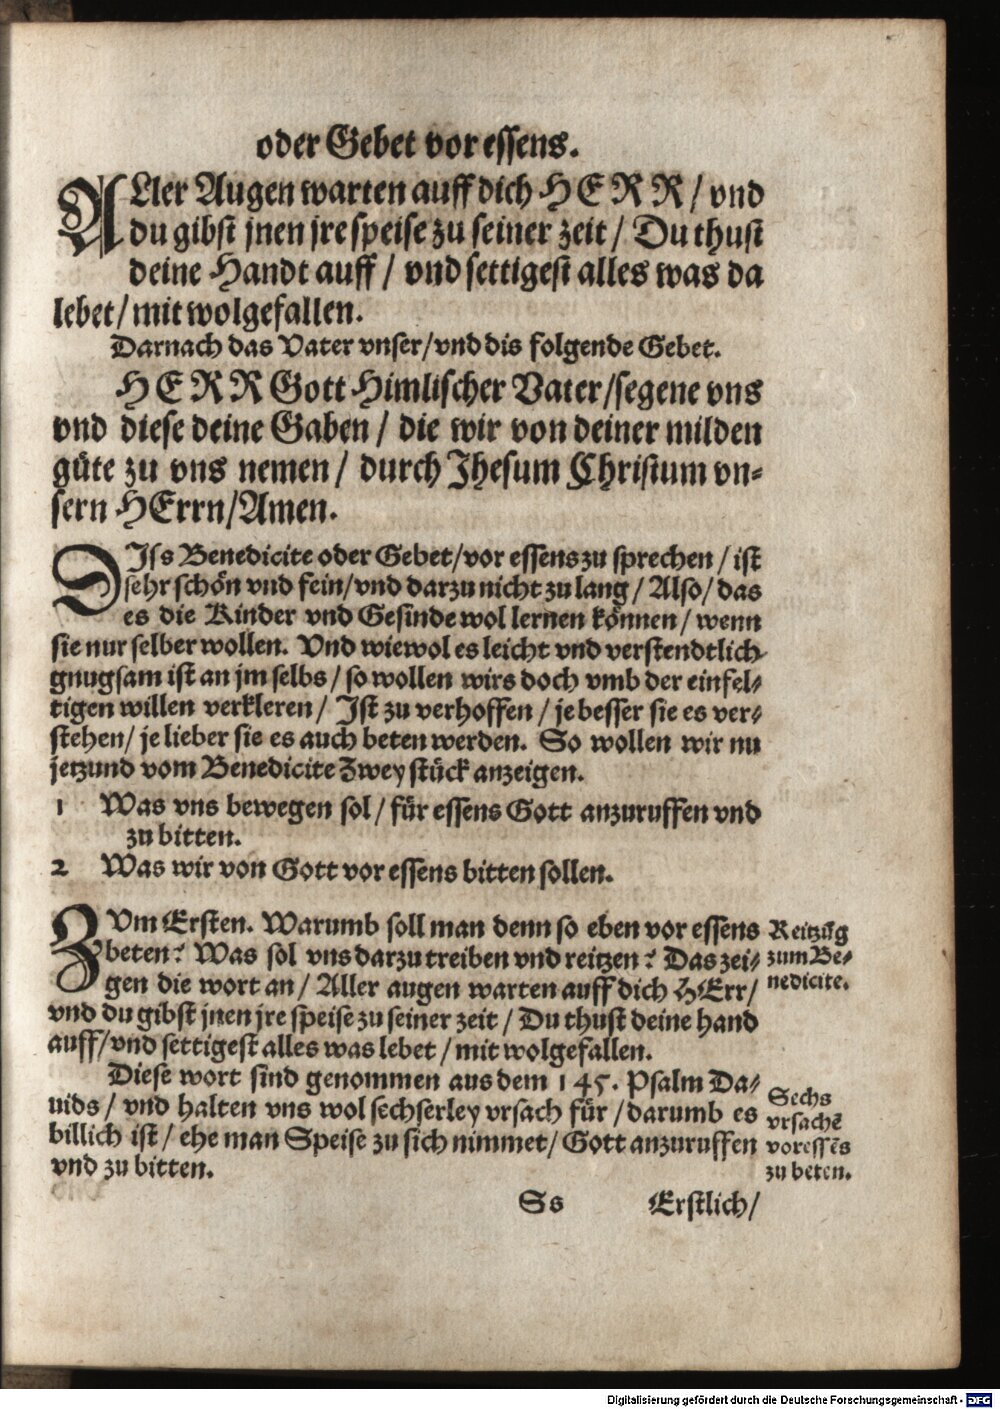 oder Gebet vor essens.
ALler Augen warten auff dich HERR / vnd
du gibst jnen jre speise zu seiner zeit / Du thust
deine Handt auff / vnd settigest alles was da
lebet / mit wolgefallen.
Darnach das Vater vnser / vnd dis folgende Gebet.
HERR Gott Himlischer Vater / segene vns
vnd diese deine Gaben / die wir von deiner milden
güte zu vns nemen / durch Jhesum Christum vn-
sern HErrn / Amen.
DJss Benedicite oder Gebet / vor essens zu sprechen / ist
sehr schön vnd fein / vnd darzu nicht zu lang / Also / das
es die Kinder vnd Gesinde wol lernen können / wenn
sie nur selber wollen. Vnd wiewol es leicht vnd verstendtlich
gnugsam ist an jm selbs / so wollen wirs doch vmb der einfel-
tigen willen verkleren / Jst zu verhoffen / je besser sie es ver-
stehen / je lieber sie es auch beten werden. So wollen wir nu
jetzund vom Benedicite Zwey stück anzeigen.
1 Was vns bewegen sol / für essens Gott anzuruffen vnd
zu bitten.
2 Was wir von Gott vor essens bitten sollen.
ZVm Ersten. Warumb soll man denn so eben vor essens
beten? Was sol vns darzu treiben vnd reitzen? Das zei-
gen die wort an / Aller augen warten auff dich HErr /
vnd du gibst jnen jre speise zu seiner zeit / Du thust deine hand
auff / vnd settigest alles was lebet / mit wolgefallen.
Reitzūg
zum Be-
nedicite.
Diese wort sind genommen aus dem 145. Psalm Da-
uids / vnd halten vns wol sechserley vrsach für / darumb es
billich ist / ehe man Speise zu sich nimmet / Gott anzuruffen
vnd zu bitten.
Sechs
vrsachē
vor essēs
zu beten.
Ss Erstlich /
Digitalisierung gefördert durch die Deutsche Forschungsgemeinschaft - DFG